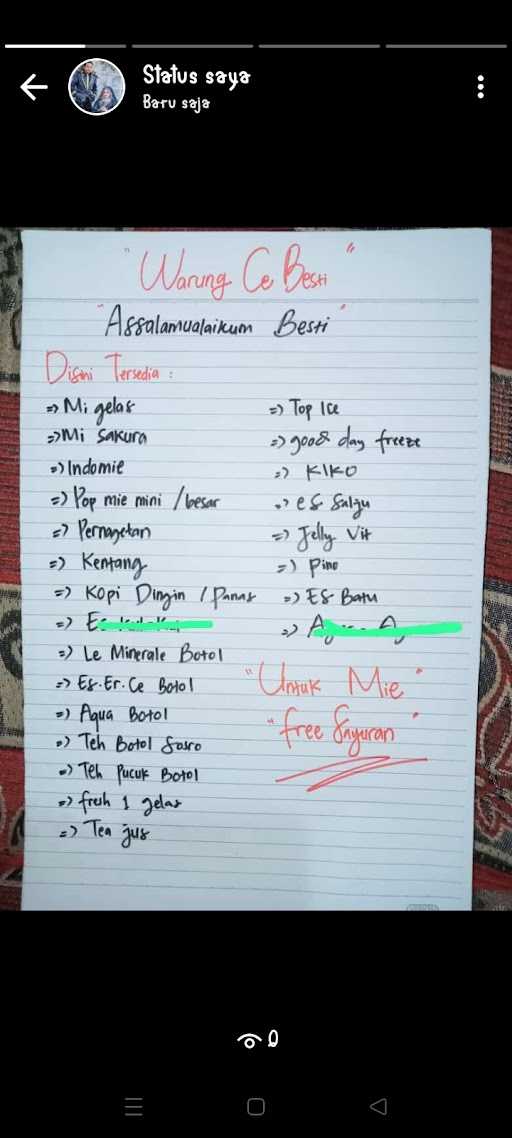 Status saya
Baru saja
"Warung Ce Besti"
"Assalamualaikum Besti"
Disini Tersedia :
=> Mi gelas
=> Mi Sakura
=> Indomie
=> Pop mie mini / besar
=> Pernugetan
=> Kentang
=> Kopi Dingin / Panas
=> Es
=> Le Minerale Botol
=> Es.Er.Ce Botol
=> Aqua Botol
=> Teh Botol Sosro
=> Teh Pucuk Botol
=> fresh 1 gelas
=> Tea jus
=> Top Ice
=> good day freeze
=> KIKO
=> es Salju
=> Jelly Vit
=> Pino
=> ES Batu
"Untuk Mie"
"free Sayuran"
0